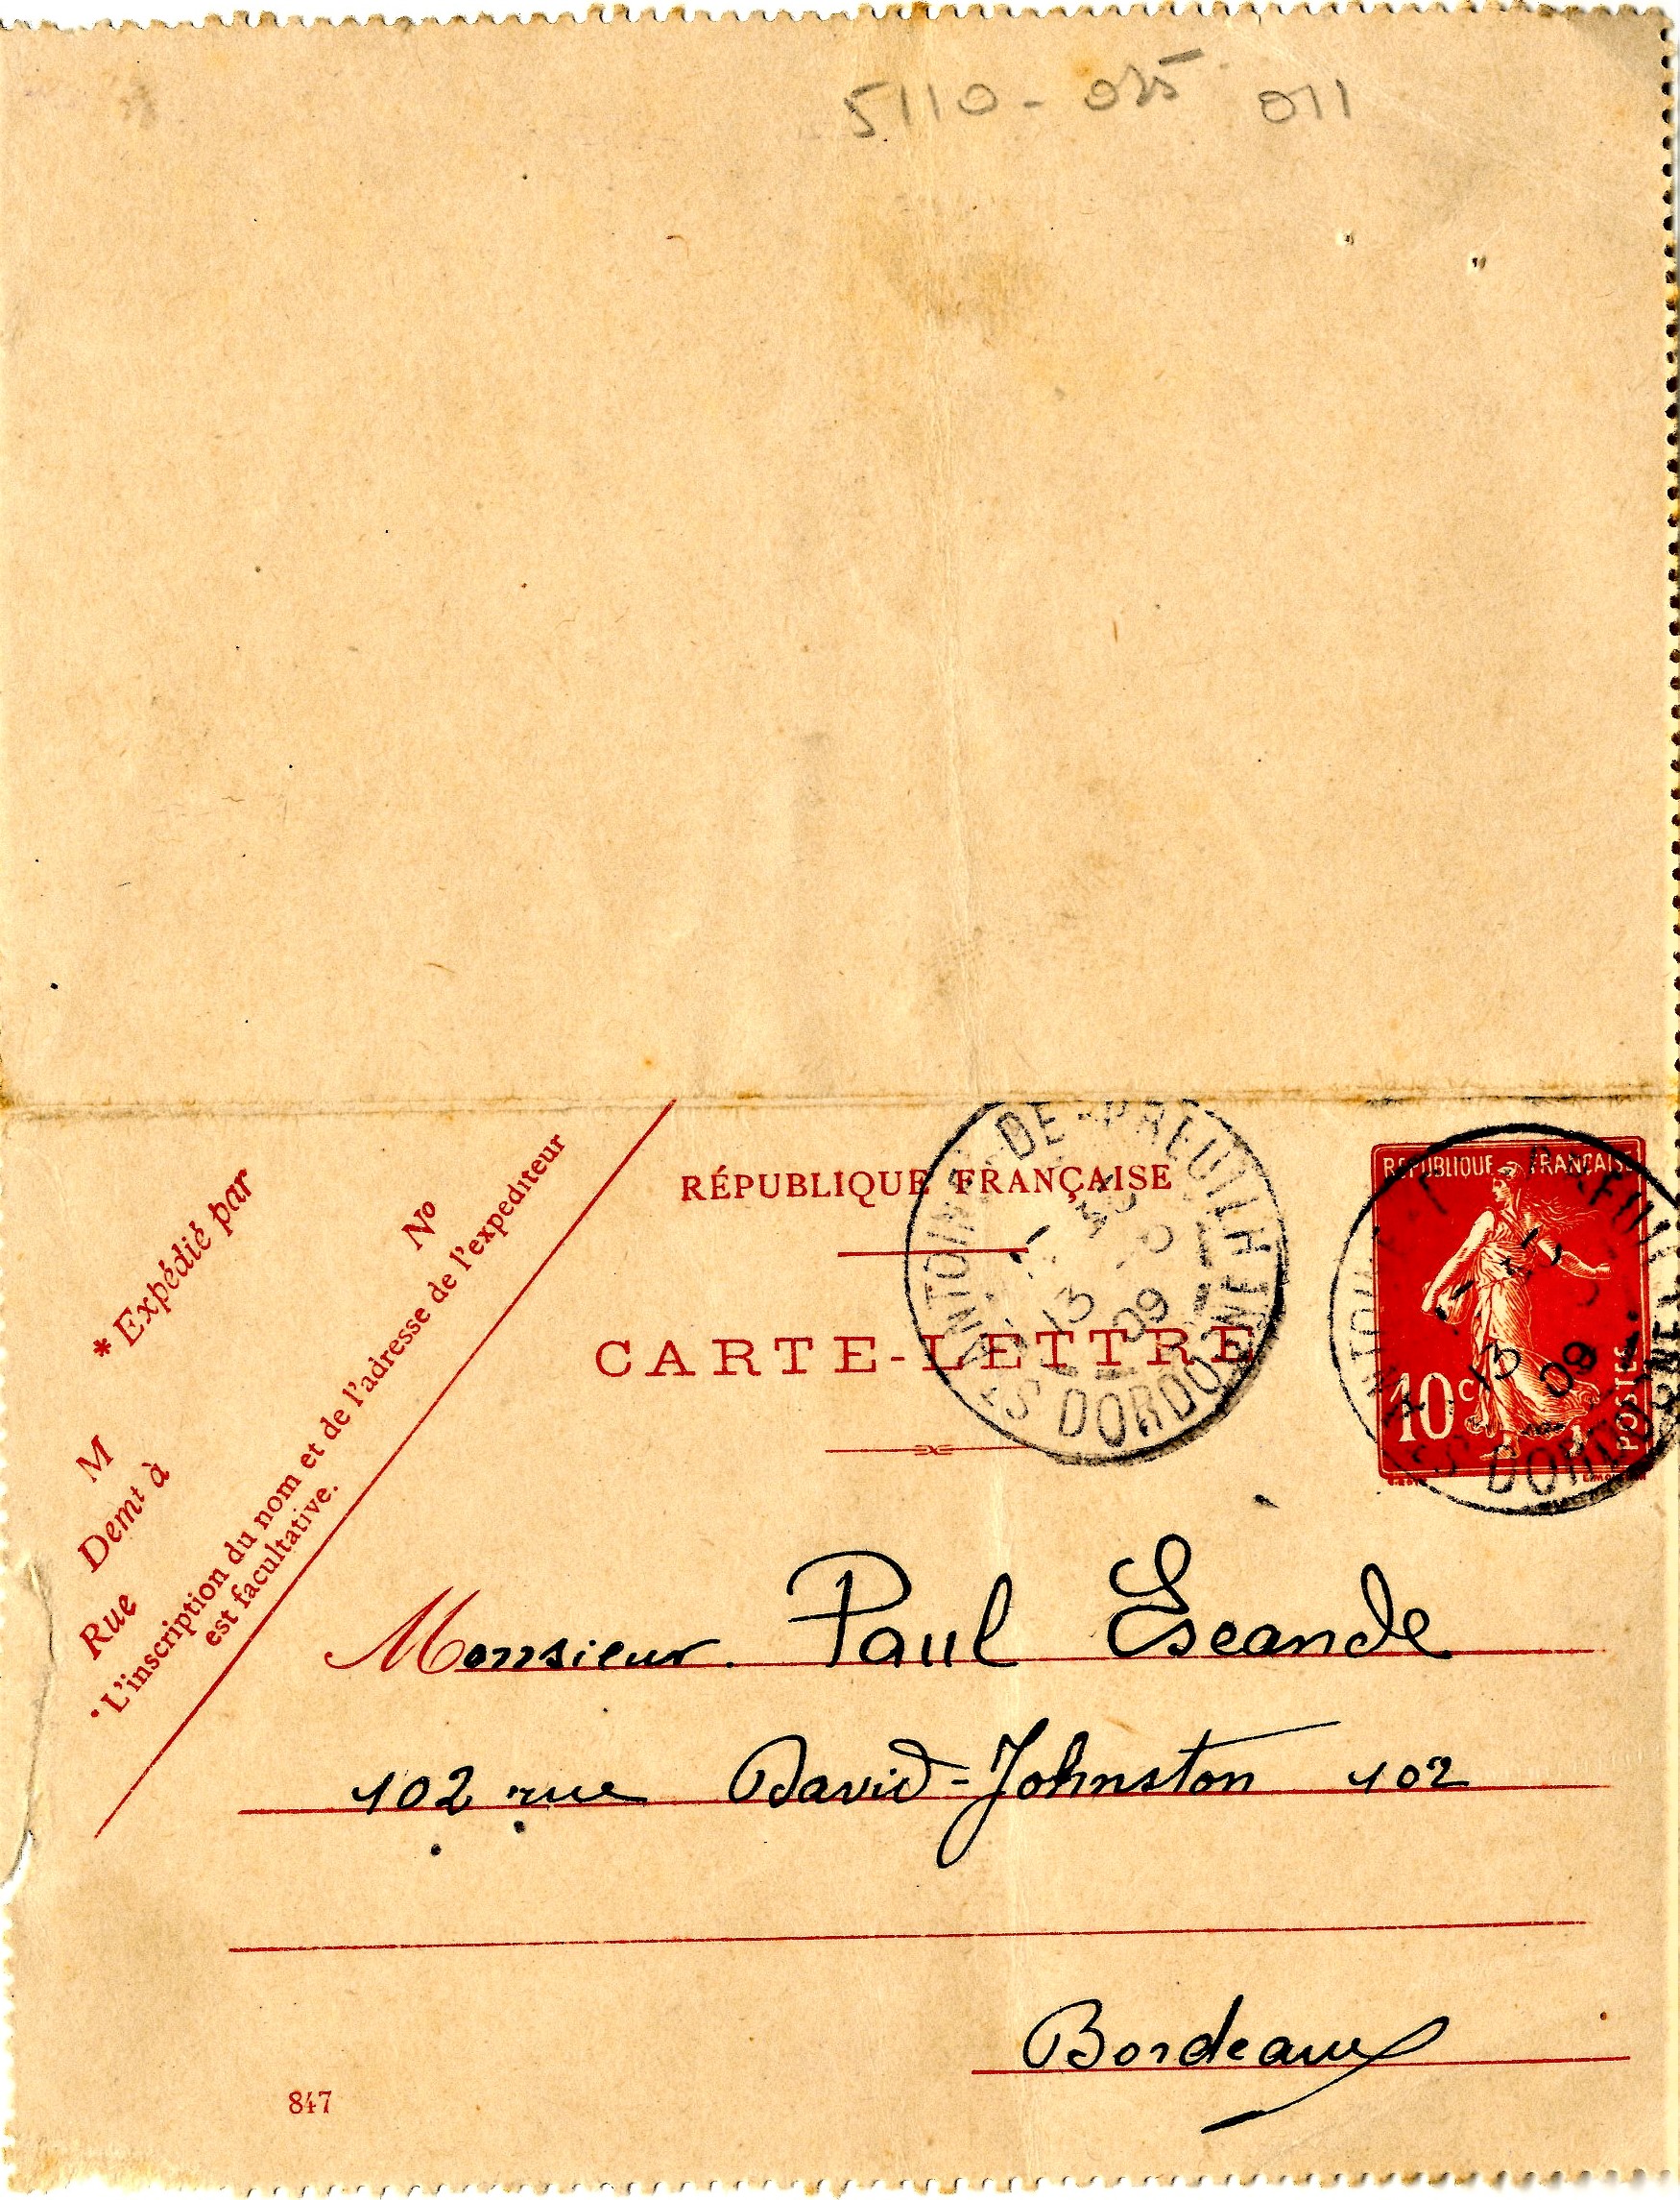 5110-025 011
* Expédié par
M
Demt à
Rue
No
* L'inscription du nom et de l'adresse de l'expéditeur
est facultative.
RÉPUBLIQUE FRANÇAISE
CARTE-LETTRE
DE-PREUILH
13
09
DORDOGNE
REPUBLIQUE FRANÇAISE
10c
POSTES
13
09
Monsieur. Paul Escande
102 rue David-Johnston 102
Bordeaux
847